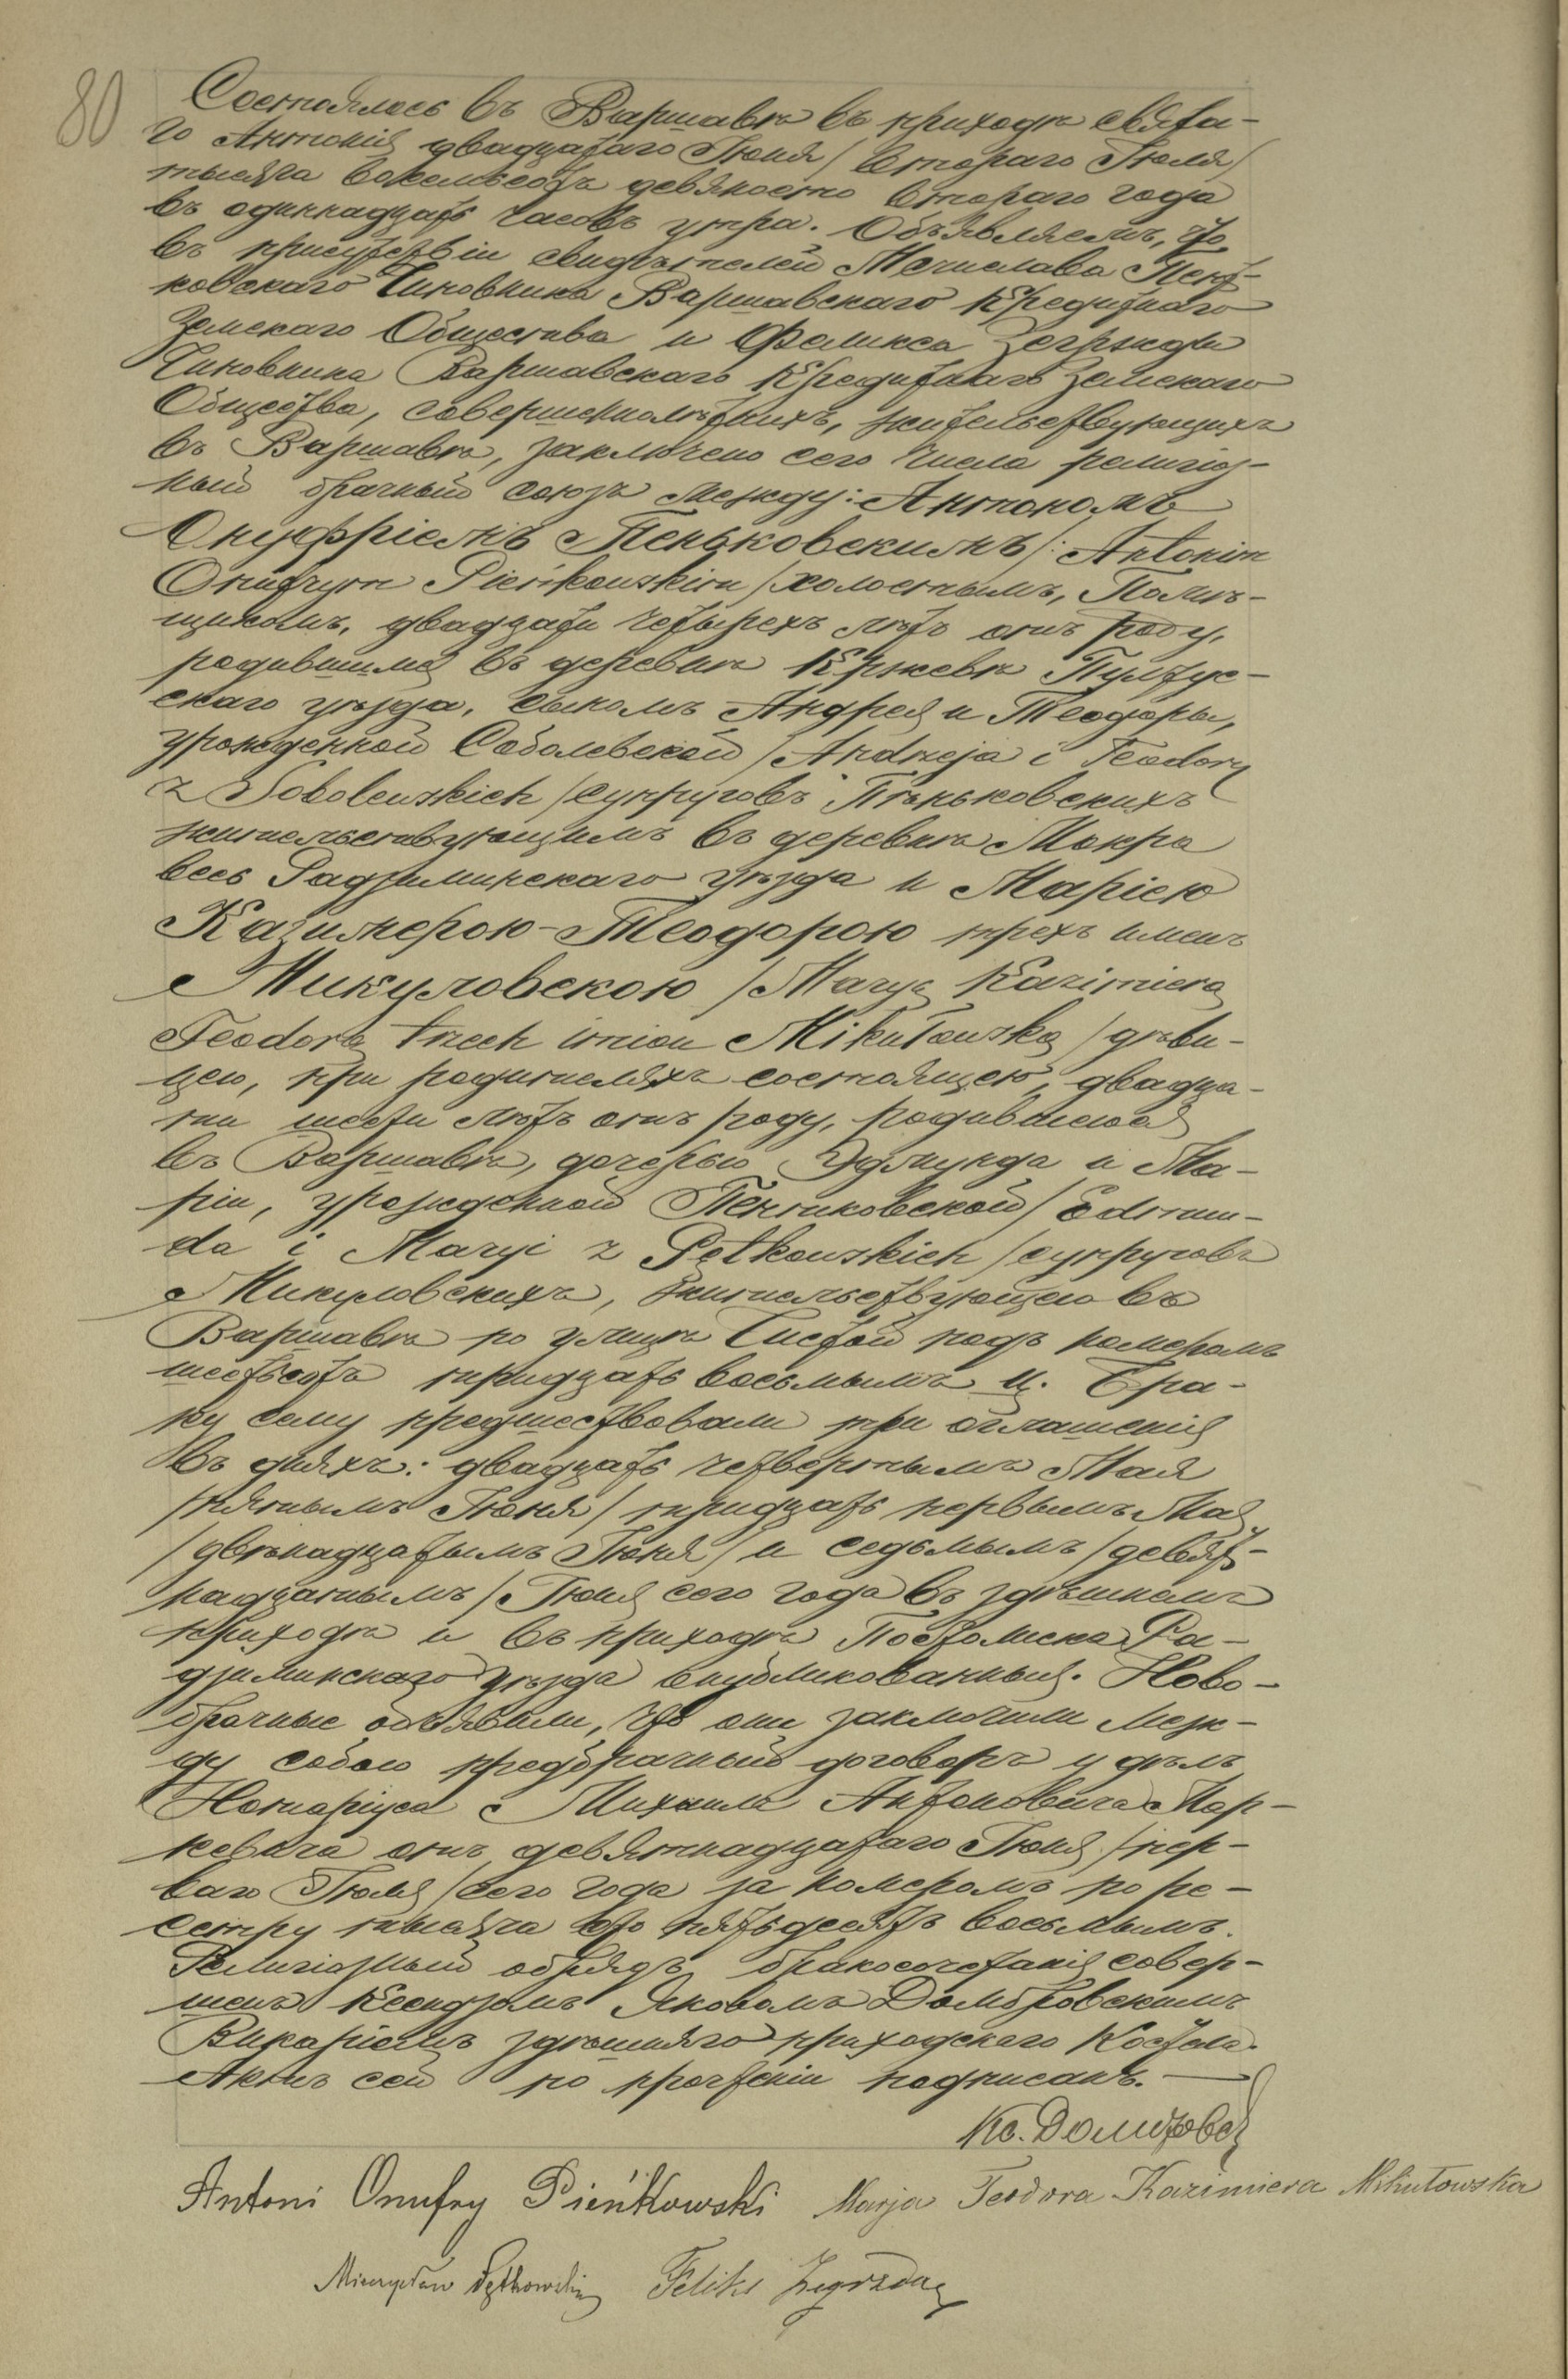 80
Состоялось въ Варшавѣ въ приходѣ свята-
го Антонія двадцатаго Іюня / втораго Іюля /
тысяча восемьсотъ девяносто втораго года
въ одиннадцать часовъ утра. Объявляемъ, что
въ присутствіи свидѣтелей Мечислава Пент-
ковскаго Чиновника Варшавскаго Кредитнаго
Земскаго Общества и Феликса Зегржды
Чиновника Варшавскаго Кредитнаго Земскаго
Общества, совершеннолѣтнихъ, жительствующихъ
въ Варшавѣ, заключено сего числа религіоз-
ный брачный союзъ между: Антономъ
Онуфріемъ Пеньковскимъ /: Antonim
Onufrym Pieńkowskim / холостымъ, Помѣ-
щикомъ, двадцати четырехъ лѣтъ отъ роду,
родившимся въ деревнѣ Кржевкѣ Пултус-
скаго уѣзда, сыномъ Андрея и Теодоры,
урожденной Соболевской / Andrzeja i Teodory
z Sobolewskich / супруговъ Пѣньковскихъ
жительствующимъ въ деревнѣ Мокра
весь Радзиминскаго уѣзда и Маріею
Казимерою-Теодорою трехъ именъ
Микуловскою / Maryą Kazimierą
Teodorą trzech imion Mikułowską / дѣви-
цею, при родителяхъ состоящею, двадца-
ти шести лѣтъ отъ роду, родившеюся
въ Варшавѣ, дочерью Эдмунда и Ма-
ріи, урожденной Пентковской / Edmun-
da i Maryi z Pętkowskich / супруговъ
Микуловскихъ, жительствующею въ
Варшавѣ по улицѣ Чистой подъ номеромъ
шестьсотъ тридцать восьмымъ ц. Бра-
ку сему предшествовали три оглашенія
въ дняхъ: двадцать четвертымъ Мая
/ пятымъ Іюня / тридцать первымъ Мая
/ двѣнадцатымъ Іюня / и седьмымъ / девят-
надцатымъ / Іюня сего года въ здѣшнемъ
приходѣ и въ приходѣ Постолиска Ра-
дзиминскаго уѣзда опубликованныя. Ново-
брачные объявили, что они заключили меж-
ду собою предбрачный договоръ у дѣлъ
Нотаріуса Михаила Антоновича Мар-
кевича отъ девятнадцатаго Іюня / пер-
ваго Іюля / сего года за номеромъ по ре-
естру тысяча сто пятьдесятъ восьмымъ.
Религіозный обрядъ бракосочетанія совер-
шенъ Ксендзомъ Яковомъ Домбровскимъ
Викаріемъ здѣшняго приходскаго Костела.
Актъ сей по прочтеніи подписанъ. —
Кс.
Antoni Onufry Pieńkowski Marja Teodora Kazimiera Mikułowska
Mieczysław Pętkowski Feliks Zegrzda